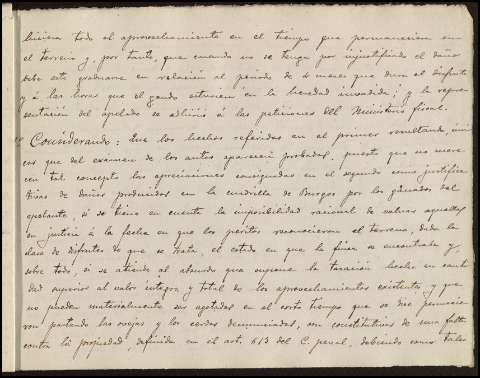 hiciera todo el aprovechamiento en el tiempo que permanecieron en
el terreno y, por tanto, que cuando no se tenga por injustificado el daño
debe este graduarse en relación al período de 4 meses que dura el disfrute
y á las horas que el ganado estuviera en la heredad invadida; y la repre-
sentación del apelado se adhirió á las peticiones del Ministerio fiscal.
1º Considerando: Que los hechos referidos en el primer resultando, úni-
cos que del examen de los autos aparecen probados, puesto que no mere-
cen tal concepto las apreciaciones consignadas en el segundo como justifica-
tivas de daños producidos en la cuadrilla de Burgos por los ganados del
apelante, si se tiene en cuenta la imposibilidad racional de valuar aquellos
en justicia á la fecha en que los peritos reconocieron el terreno, dada la
clase de disfrutes de que se trata, el estado en que la finca se encontraba y,
sobre todo, si se atiende al absurdo que supone la tasación hecha en canti-
dad superior al valor íntegro y total de los aprovechamientos existentes y que
no pueden materialmente ser agotados en el corto tiempo que se dice permanecie-
ron pastando las ovejas y los cerdos denunciados, son constitutivos de una falta
contra la propiedad, definida en el art. 613 del C. penal, debiendo como tales